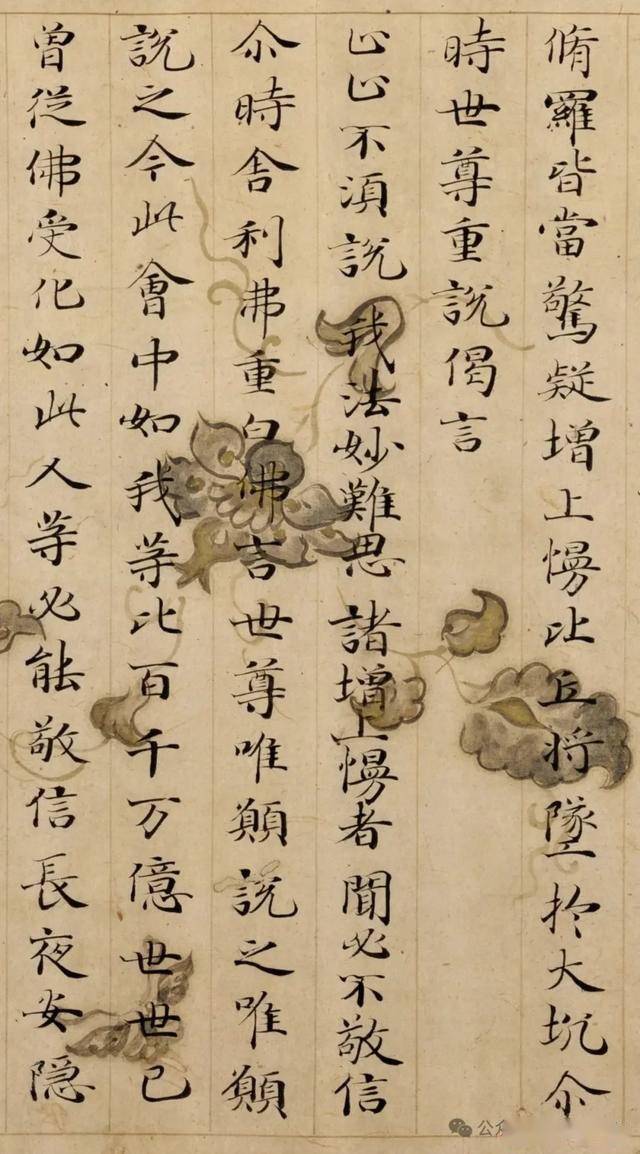 脩羅皆當驚疑增上慢比丘將墜扵大坑尒
時世尊重說偈言
止止不須說 我法妙難思 諸增上慢者 聞必不敬信
尒時舍利弗重白佛言世尊唯願說之唯願
說之今此會中如我等比百千万億世世已
曾從佛受化如此人等必能敬信長夜安隱